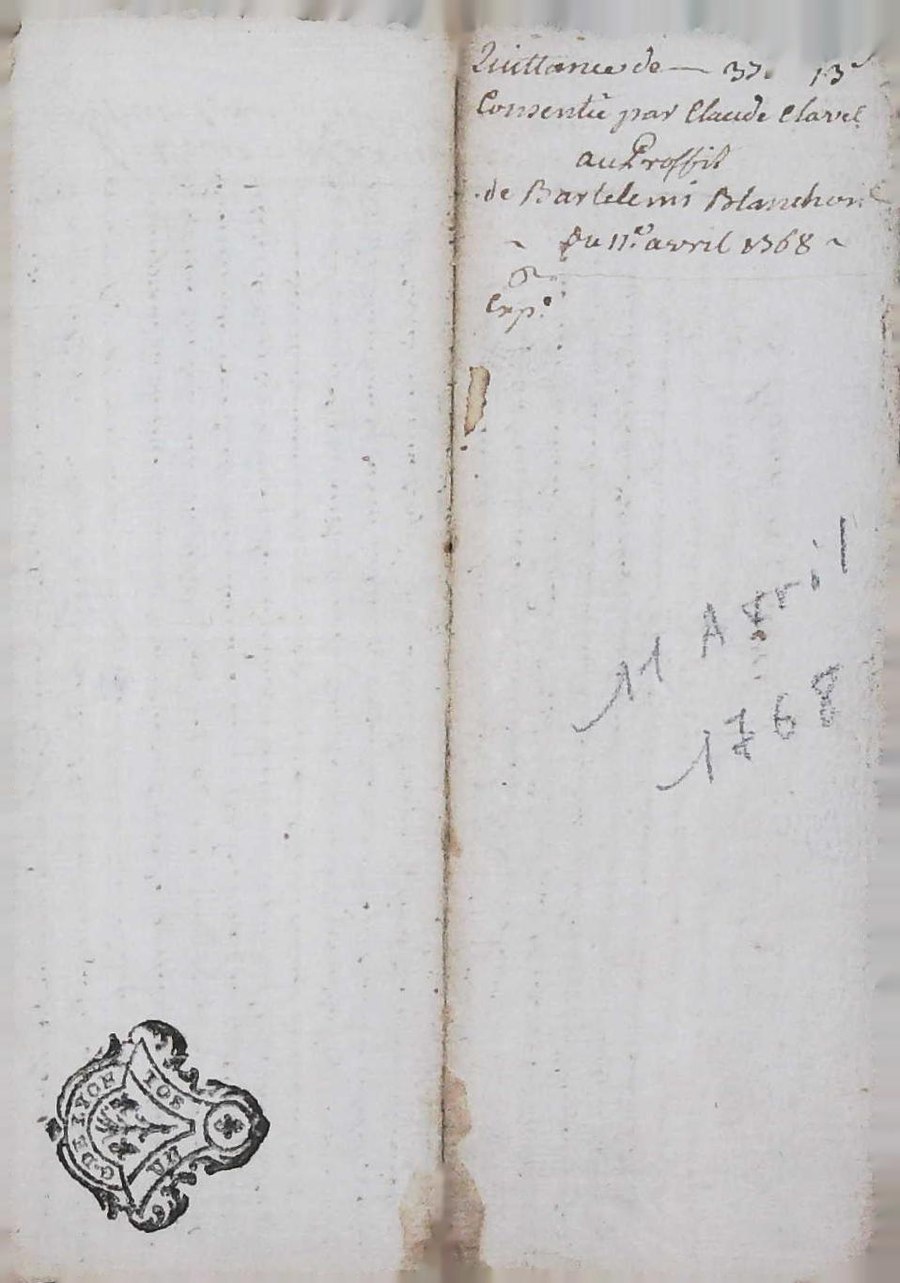 Quittance de — 37. 13ˢ
Consentie par Claude Clavel
au Proffit
de Bartelemi Blanchon
~ Du 11.ᵉ avril 1768 ~
Exp.º
11 Avril
1768
G. DE LYON